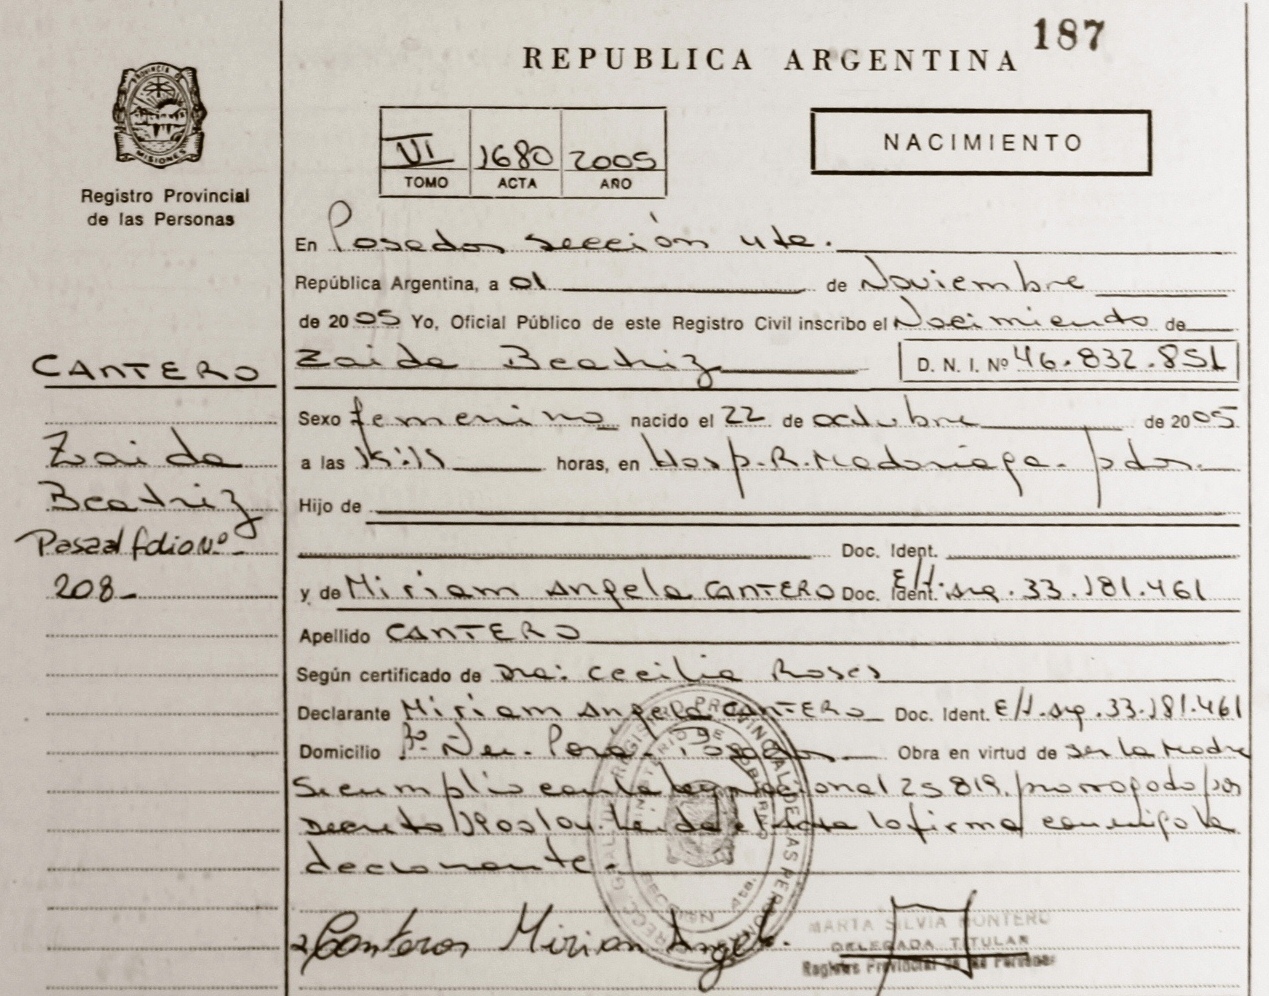 187
REPUBLICA ARGENTINA
PROVINCIA DE
MISIONES
Registro Provincial
de las Personas
VI 1680 2005
TOMO ACTA AÑO
NACIMIENTO
En Posadas sección 4ta.
República Argentina, a 01 de Noviembre
de 2005 Yo, Oficial Público de este Registro Civil inscribo el Nacimiento de
Zaida Beatriz D. N. I. Nº 46.832.851
CANTERO
Zaida
Beatriz
Pasa al folio Nº
208-
Sexo femenino nacido el 22 de octubre de 2005
a las horas, en Hosp. R. Madariaga. pdas.
Hijo de
Doc. Ident.
y de Miriam Angela CANTERO Doc. Ident. E/t. arg. 33.181.461
Apellido CANTERO
Según certificado de Dra: Cecilia Roses
Declarante Miriam Angela CANTERO Doc. Ident. E/t. arg. 33.181.461
Domicilio Bº Ñu Porá Posadas Obra en virtud de ser la Madre
Se cumplió con la ley nacional 25819. prorrogado por
Decreto 1900/04. Leída el acta la firma conmigo la
declarante.
Canteros Mirian Angela.
MARTA SILVIA MONTERO
DELEGADA TITULAR
Registro Provincial de las Personas